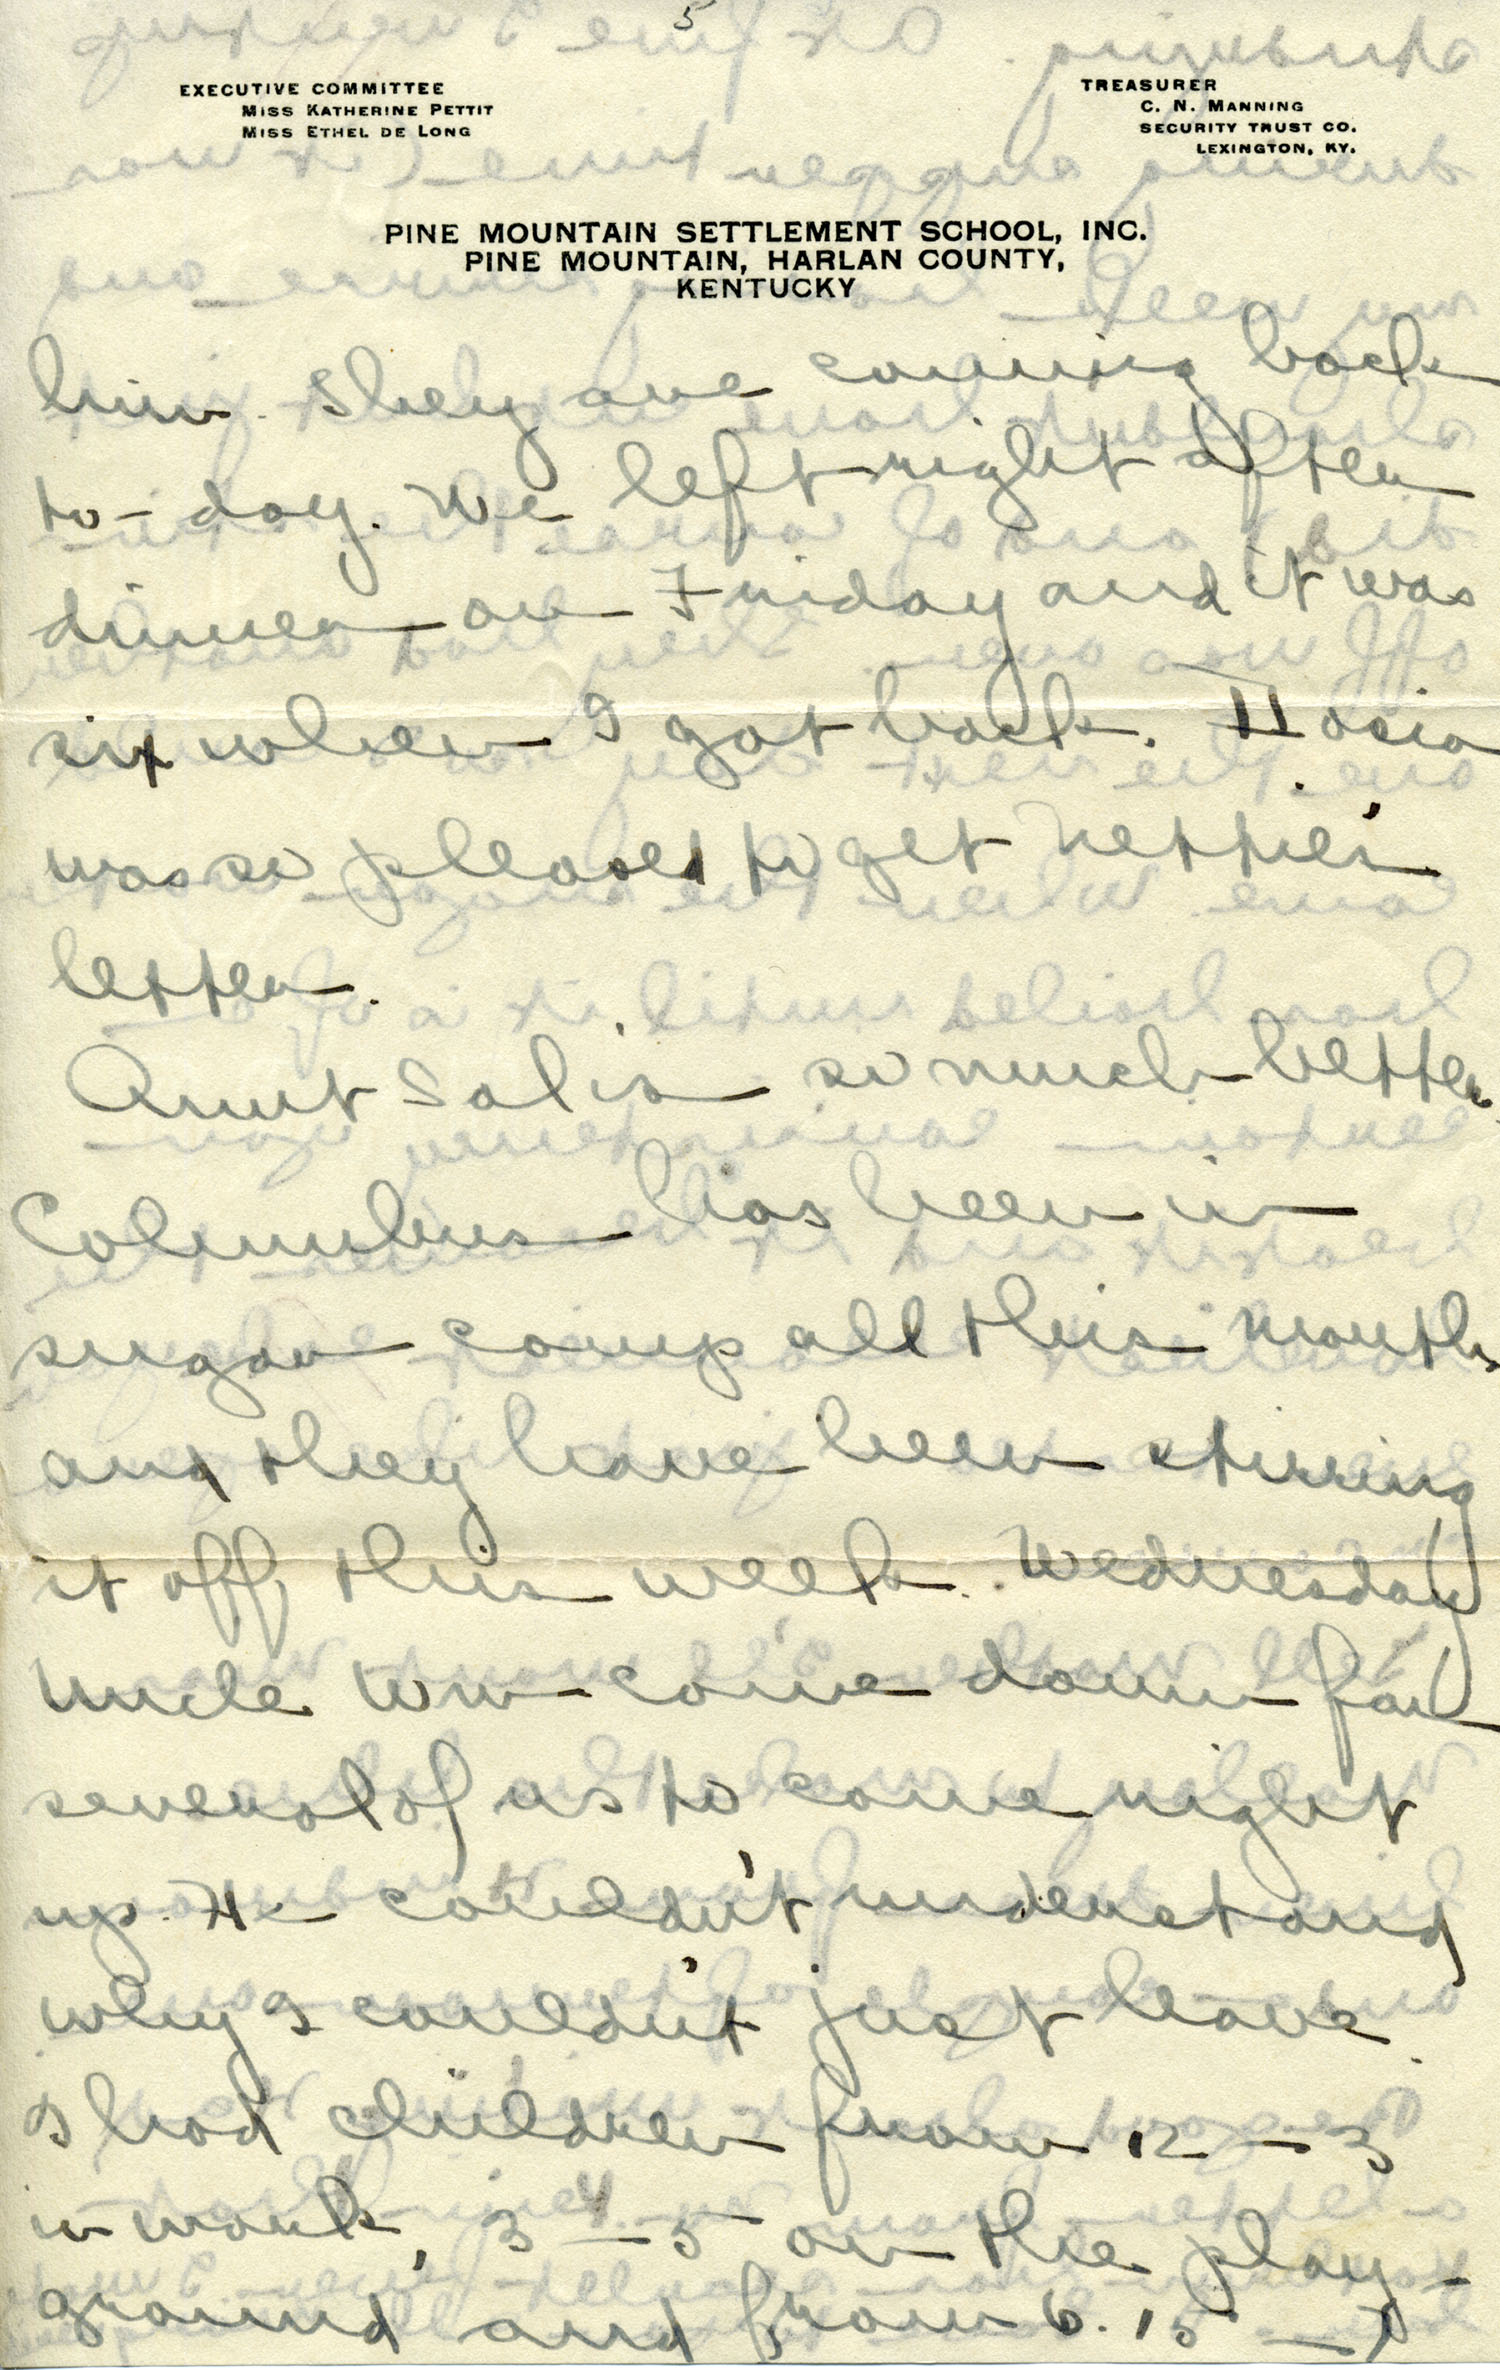 5
EXECUTIVE COMMITTEE
MISS KATHERINE PETTIT
MISS ETHEL DE LONG
TREASURER
C. N. MANNING
SECURITY TRUST CO.
LEXINGTON, KY.
PINE MOUNTAIN SETTLEMENT SCHOOL, INC.
PINE MOUNTAIN, HARLAN COUNTY,
KENTUCKY
him. They are coming back
to-day. We left right after
dinner on Friday and it was
six when I got back.
was so pleased to get Nettie's
letter.
Aunt Sal is so much better.
Columbus has been in
sugar camp all this month
and they have been stirring
it off this week. Wednesday
Uncle Wm come down for
several of us to come right
up. He couldn't understand
why I couldn't just leave.
I had children from 12 – 3
in work, 3 4 – 5 on the play-
ground and from 6.15 – 7